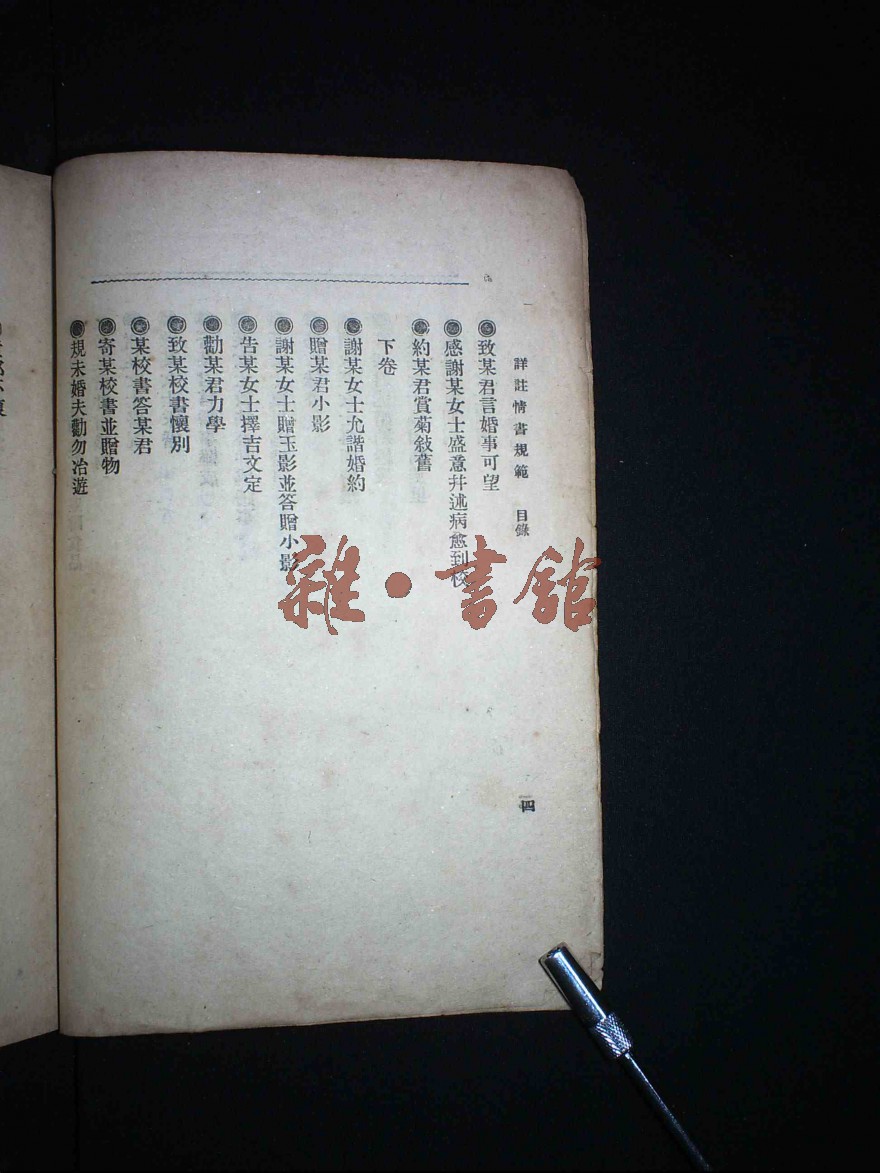 詳註情書規範 目錄
◉致某君言婚事可望
◉感謝某女士盛意幷述病愈到校
◉約某君賞菊敍舊
下卷
◉謝某女士允諧婚約
◉贈某君小影
◉謝某女士贈玉影並答贈小影
◉告某女士擇吉文定
◉勸某君力學
◉致某校書懷別
◉某校書答某君
◉寄某校書並贈物
◉規未婚夫勸勿冶遊
四
雜·書館